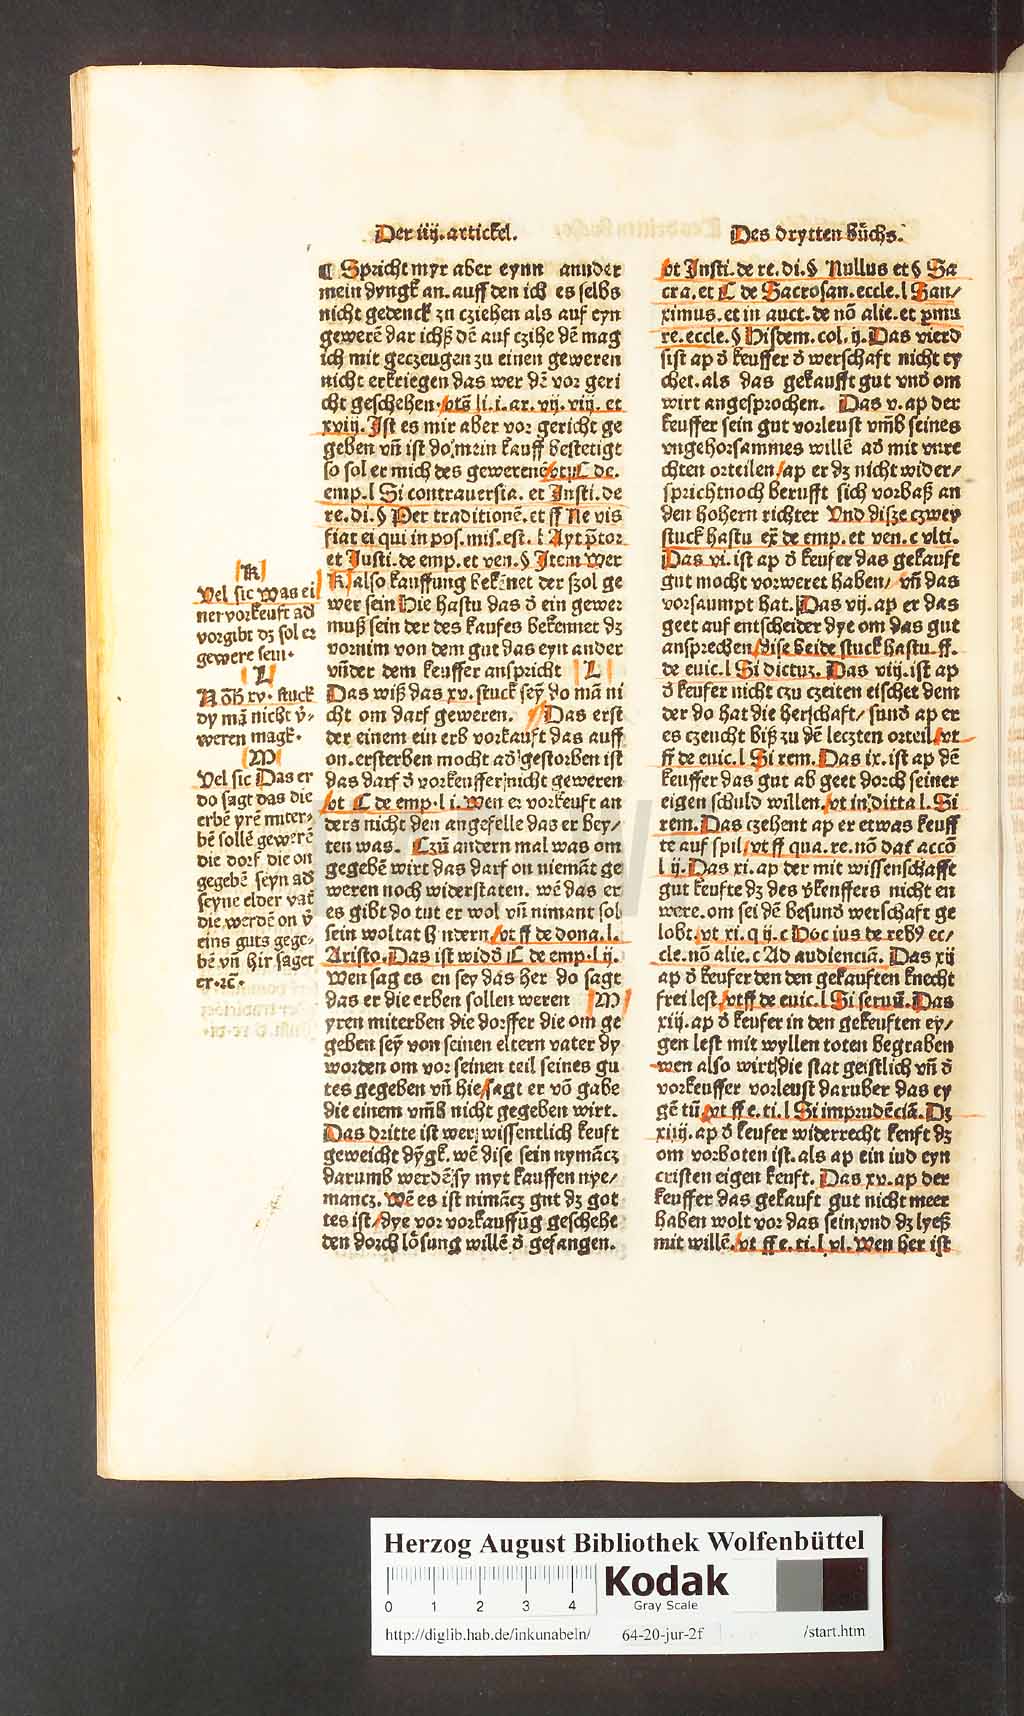 Der iiij. artickel.
Des drytten Buchs.
¶ Spricht myr aber eynn annder
mein dyngk an. auff den ich es selbs
nicht gedenck zu cziehen als auf eyn
gewerē dar ichß dē auf czihe dē mag
ich mit geczeugen zu einen geweren
nicht erkriegen das wer dē vor geri
cht geschehen. vtā li. i. ar. vij. viij. et
xviij. Ist es mir aber vor gericht ge
geben vñ ist do mein kauff bestetigt
so sol er mich des gewerenē vt C de.
emp. l Si contrauersia. et Insti. de
re. di. § Per traditionē. et ff Ne vis
fiat ei qui in pos. mis. est. l Ayt p̄tor
et Insti. de emp. et ven. § Item wer
K also kauffung bekēnet der szol ge
wer sein Hie hastu das ð ein gewer
muß sein der des kaufes bekennet dz
vornim von dem gut das eyn ander
vn̄der dem keuffer anspricht L
Das wiß das xv. stuck seȳ do mā ni
cht om darf geweren. Das erst
der einem ein erb vorkauft das auff
on. ersterben mocht að gestorben ist
das darf ð vorkeuffer nicht geweren
vt C de emp. l i. Wen er vorkeuft an
ders nicht den angefelle das er bey/
ten was. Czū andern mal was om
gegebē wirt das darf on niemāt ge
weren noch widerstaten. wē das er
es gibt do tut er wol vñ nimant sol
sein woltat hindern vt ff de dona. l.
Aristo. Das ist widð C de emp. l ij.
Wen sag es en sey das her do sagt
das er die erben sollen weren M
yren miterben die dorffer die om ge
geben seȳ von seinen eltern vater dy
worden om vor seinen teil seines gu
tes gegeben vñ hie sagt er vō gabe
die einem vmb nicht gegeben wirt.
Das dritte ist wer wissentlich keuft
geweicht dȳgk. wē dise sein nymācz
darumb werdē sy myt kauffen nye/
mancz. Wē es ist nimācz gut dz got
tes ist dye vor vorkauffūg geschehe
den dorch losung willē ð gefangen.
K
Vel sic was ei
ner vorkeuft að
vorgibt dz sol er
gewere sein.
L
xv. stuck
dy mā nicht v̄/
weren magk.
M
Vel sic Das er
do sagt das die
erbē yrē miter/
bē sollē gewerē
die dorf die on
gegebē seyn að
seyne elder vat̄
die werdē on v̄
eins guts gege/
bē vñ hir saget
er. ꝛc.
vt Insti. de re. di. § Nullus et § Sa
cra. et C de Sacrosan. eccle. l San/
ximus. et in auct. de nō alie. et p̄mu
re. eccle. § Hisdem. col. ij. Das vierd
sist ap ð keuffer ð werschaft nicht ey
chet. als das gekaufft gut vnð om
wirt angesprochen. Das v. ap der
keuffer sein gut vorleust vm̄b seines
vngehorsammes willē að mit vnre
chten orteilen ap er dz nicht wider/
spricht noch berufft sich vorbaß an
den hohern richter Vnd disze czwey
stuck hastu ex̄ de emp. et ven. c vlti.
Das vi. ist ap ð keufer das gekauft
gut mocht vorweret haben/ vñ das
vorsaumpt hat. Das vij. ap er das
geet auf entscheider dye om das gut
ansprechen dise beide stuck hastu ff.
de euic. l Si dictuz. Das viij. ist ap
ð keufer nicht czu czeiten eischet dem
der do hat die herschaft/ sunð ap er
es czeucht biß zu dē leczten orteil vt
ff de euic. l Si rem. Das ix. ist ap dē
keuffer das gut ab geet dorch seiner
eigen schuld willen. vt in ditta l. Si
rem. Das czehent ap er etwas keuff
te auf spil vt ff qua. re. nō dat accō
l ij. Das xi. ap der mit wissenschafft
gut keufte dz des v̄keuffers nicht en
were. om sei dē besunð werschaft ge
lobt. vt xi. q ij. c Hoc ius de rebꝰ ec/
cle. nō alie. c Ad audienciā. Das xij
ap ð keufer den den gekauften knecht
frei lest. vt ff de euic. l Si seruū. Das
xiij. ap ð keufer in den gekeuften ey/
gen lest mit wyllen toten begraben
wen also wirt die stat geistlich vñ ð
vorkeuffer vorleust daruber das ey
gē tū. vt ff e. ti. l Si imprudēciā. Dz
xiiij. ap ð keufer widerrecht keuft dz
om vorboten ist. als ap ein iud eyn
cristen eigen keuft. Das xv. ap der
keuffer das gekauft gut nicht meer
haben wolt vor das sein vnd dz lyeß
mit willē. vt ff e. ti. l vl. Wen her ist
Herzog August Bibliothek Wolfenbüttel
0 1 2 3 4
Kodak
Gray Scale
http://diglib.hab.de/inkunabeln/ 64-20-jur-2f /start.htm